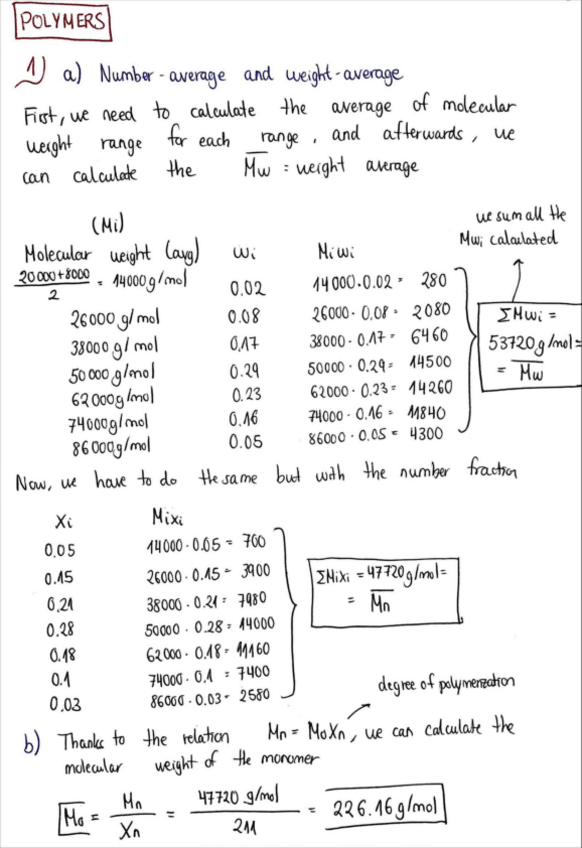 POLYMERS
1) a) Number-average and weight-average
First, we need to calculate the average of molecular
weight range for each range, and afterwards, we
can calculate the M̅w = weight average
we sum all the
Mwi calculated
(Mi)
Molecular weight (avg) wi Miwi
20000+8000/2 = 14000g/mol 0.02 14000·0.02 = 280
26000g/mol 0.08 26000·0.08 = 2080
38000g/mol 0.17 38000·0.17 = 6460
50000g/mol 0.29 50000·0.29 = 14500
62000g/mol 0.23 62000·0.23 = 14260
74000g/mol 0.16 74000·0.16 = 11840
86000g/mol 0.05 86000·0.05 = 4300
ΣMwi =
53720g/mol=
= M̅w
Now, we have to do the same but with the number fraction
Xi Mixi
0.05 14000·0.05 = 700
0.15 26000·0.15 = 3900
0.21 38000·0.21 = 7980
0.28 50000·0.28 = 14000
0.18 62000·0.18 = 11160
0.1 74000·0.1 = 7400
0.03 86000·0.03 = 2580
ΣMixi = 47720g/mol=
= M̅n
degree of polymerization
b) Thanks to the relation Mn = MoXn, we can calculate the
molecular weight of the monomer
Mo = Mn/Xn = 47720 g/mol/211 = 226.16g/mol